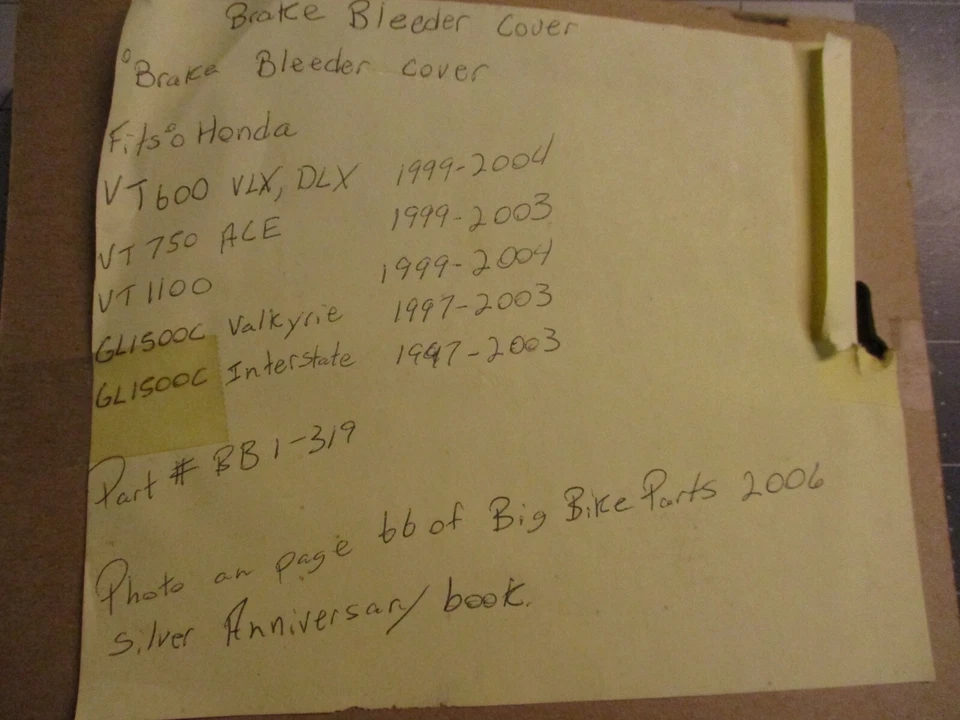 Brake Bleeder Cover
Brake Bleeder cover
Fits: Honda
VT600 VLX, DLX 1999-2004
VT750 ACE 1999-2003
VT1100 1999-2004
GL1500C Valkyrie 1997-2003
GL1500C Interstate 1997-2003
Part # BB1-319
Photo on page 66 of Big Bike Parts 2006
Silver Anniversary book.